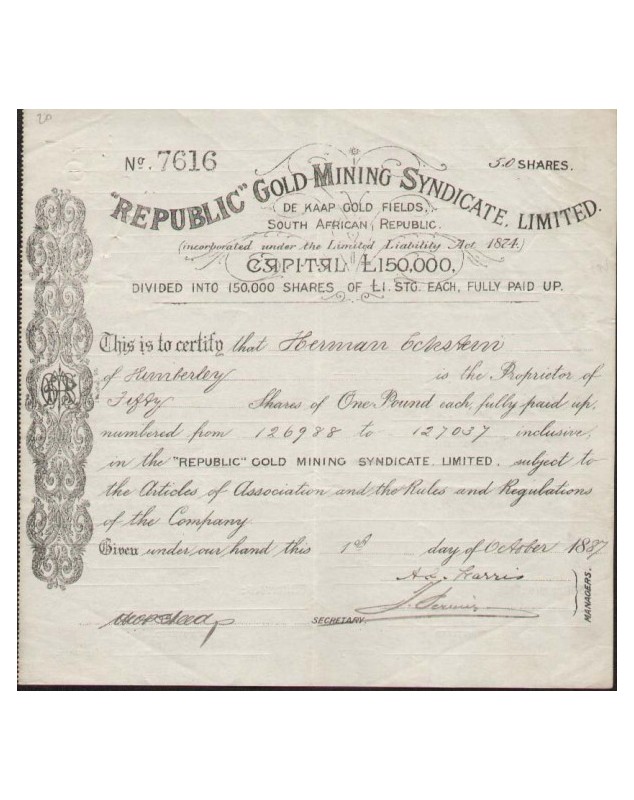 20
No. 7616
50 SHARES.
"REPUBLIC" GOLD MINING SYNDICATE, LIMITED.
DE KAAP GOLD FIELDS,
SOUTH AFRICAN REPUBLIC.
(incorporated under the Limited Liability Act 1874.)
CAPITAL £150,000,
DIVIDED INTO 150,000 SHARES OF £1. STG. EACH, FULLY PAID UP.
This is to certify that Herman Eckstein
of Kimberley is the Proprietor of
Fifty Shares of One Pound each, fully paid up,
numbered from 126988 to 127037 inclusive,
in the "REPUBLIC" GOLD MINING SYNDICATE, LIMITED, subject to
the Articles of Association and the Rules and Regulations
of the Company
Given under our hand this 1st day of October 1887
Harris
SECRETARY.
MANAGERS.